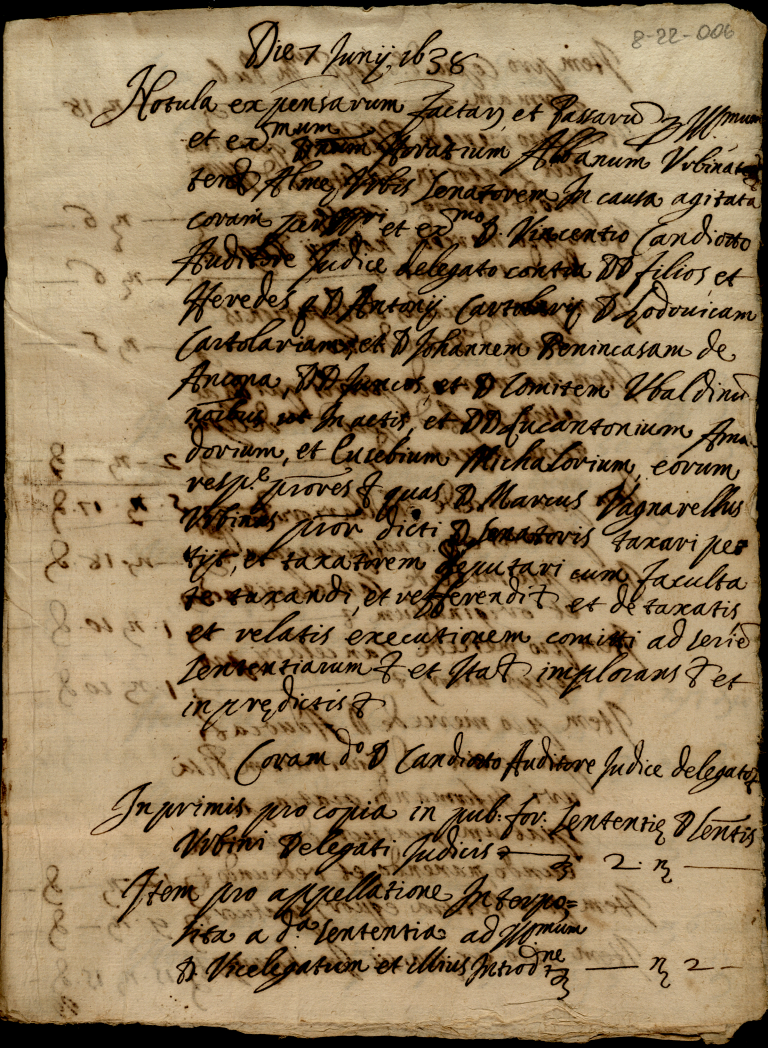 8-22-006
Die 7 Junij 1638
Notula expensarum factarũ et Passarũ p Ill.mum
et ex.mum Dnum Horatium Albanum Urbinat
Alme Urbis Senatorem In causa agitata
coram et ex.mo D Vincentio Candiotto
Auditore Judice delegato contra DD filios et
Heredes q D Antonij Cartolarij D Lodovicam
Cartolariam, et D Johannem Benincasam de
Ancona, DD et D Comitem Ubaldinũ
ut In actis, et DD Lucantonium Ama
dorium, et Eusebium Michalorium, eorum
resp.e quas D Marcus Vagnarellus
Urbinas dicti D Senatoris taxari pe
tijt, et taxatorem deputari cum faculta
te taxandi, et refferendi et de taxatis
et relatis executionem comitti ad seriẽ
sententiarum et implorans et
in prędictis
Coram d.o D Candiotto Auditore Judice delegato
In primis pro copia in pub. for. Sententię
Urbini Delegati Judicis — 2
Item pro appellatione Interpo=
sita a d.a sententia ad Ill.mum
D. Vicelegatum et illius Introd.ne — 2 —